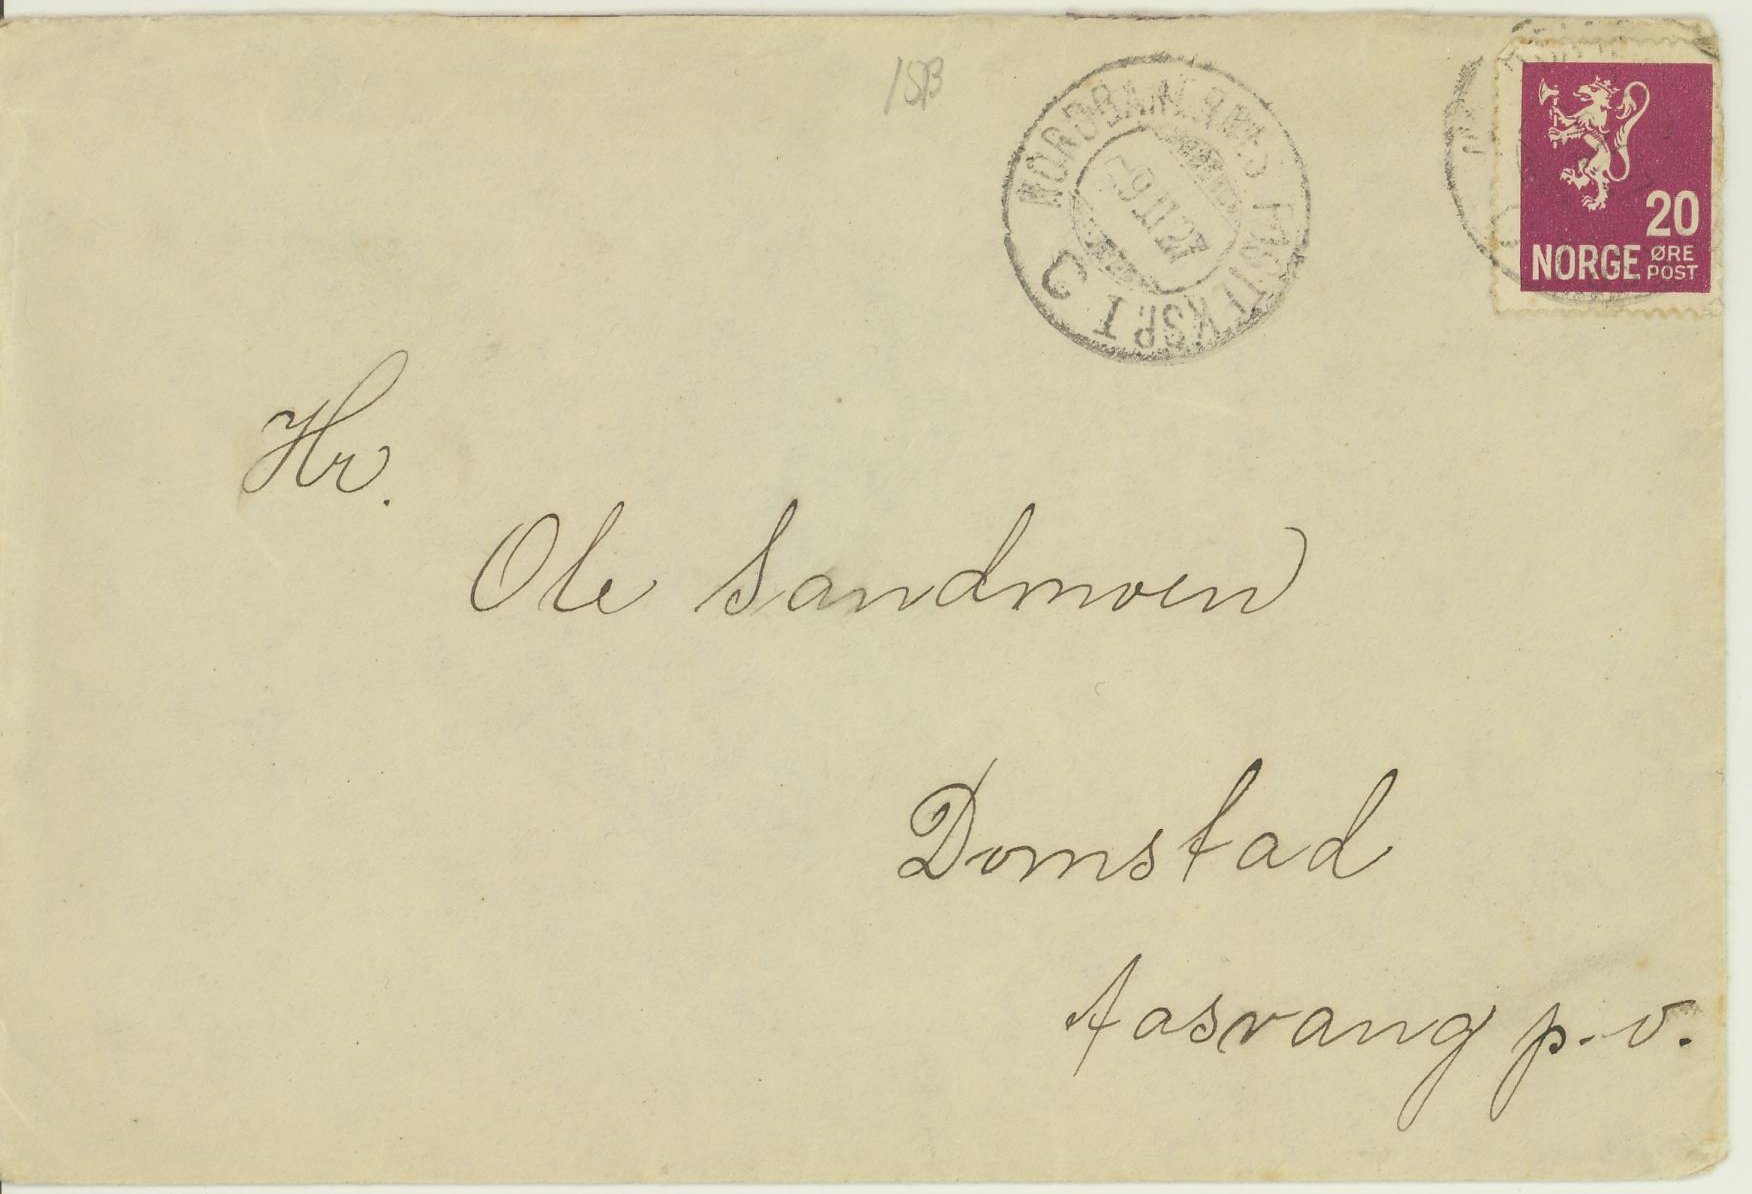 NORDBANERNES POSTEKSP. I C
-9 II 27
20
NORGE ØRE
POST
Hr.
Ole Sandmoen
Domstad
Aasvang p.v.